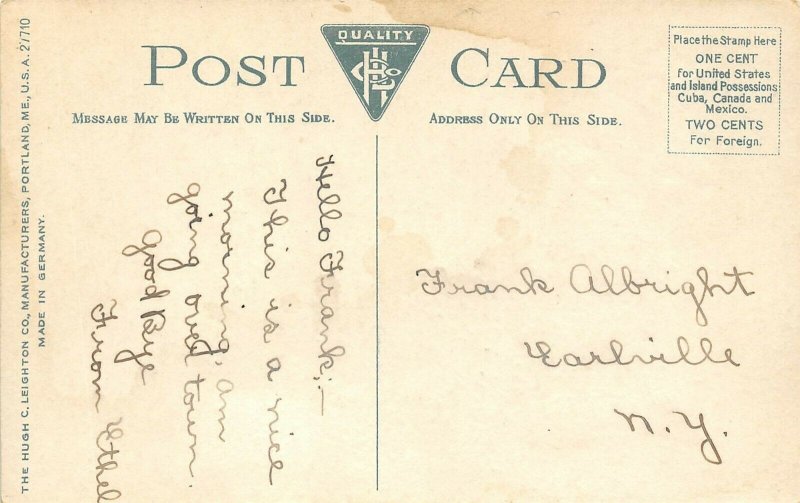 POST CARD
QUALITY
MESSAGE MAY BE WRITTEN ON THIS SIDE.
ADDRESS ONLY ON THIS SIDE.
Place the Stamp Here
ONE CENT
for United States
and Island Possessions
Cuba, Canada and
Mexico.
TWO CENTS
For Foreign.
THE HUGH C. LEIGHTON CO., MANUFACTURERS, PORTLAND, ME., U.S.A. 27710
MADE IN GERMANY.
Hello Frank;—
This is a nice
morning, am
going over town.
good Bye
From Ethel
Frank Albright
Earlville
N.Y.